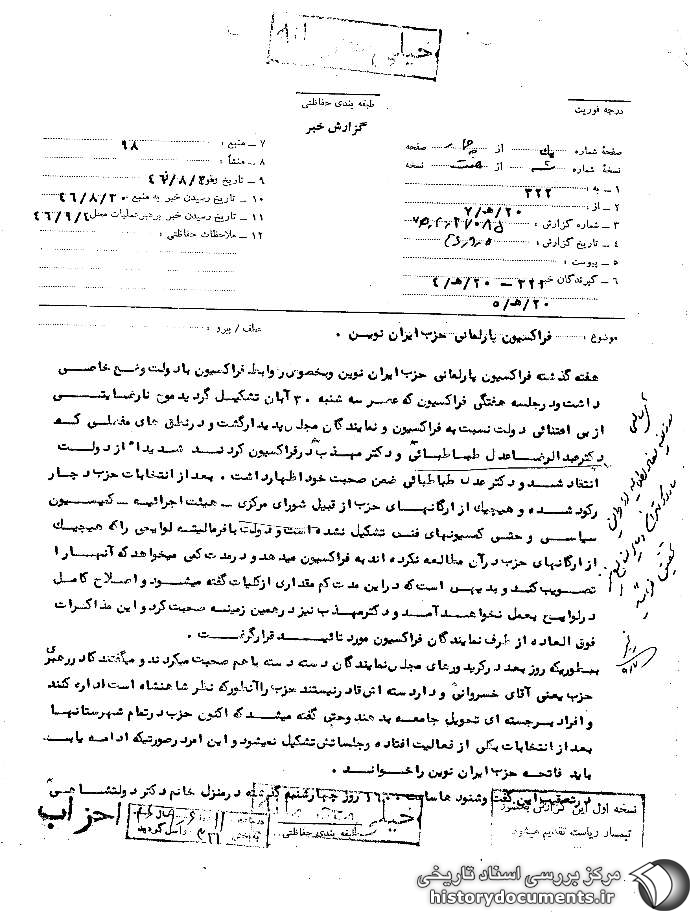 خیلی
طبقه بندی حفاظتی
درجه فوریت
گزارش خبر
صفحهٔ شماره یك از صفحه
نسخهٔ شماره از نسخه
۱ ـ به : ۳۲۲
۲ ـ از : ۲۰/هـ/۷
۳ ـ شماره گزارش :
۴ ـ تاریخ گزارش :
۵ ـ پیوست :
۶ ـ گیرندگان خبر ۳۲۲ ـ ۲۰/هـ/۴
۲۰/هـ/۵
۷ ـ منبع : ۹۸
۸ ـ منشأ :
۹ ـ تاریخ وقوع
۱۰ ـ تاریخ رسیدن خبر به منبع : ۴۶/۸/۳۰
۱۱ ـ تاریخ رسیدن خبر برهبر عملیات محل
۱۲ ـ ملاحظات حفاظتی :
موضوع : فراکسیون پارلمانی حزب ایران نوین .
عطف / پیرو :
هفته گذشته فراکسیون پارلمانی حزب ایران نوین وبخصوص روابط فراکسیون بادولت وضع خاصی
داشت ودر جلسه هفتگی فراکسیون که عصر سه شنبه ۳۰ آبان تشکیل گردید موج نارضایتی
از بی اعتنائی دولت نسبت به فراکسیون و نمایندگان مجلس پدیدار گشت و در نطق های مفصلی که
دکتر عبدالرضا عدل طباطبائی و دکتر مهذب در فراکسیون کردند شدیدا از دولت
انتقاد شد و دکتر عدل طباطبائی ضمن صحبت خود اظهار داشت . بعد از انتخابات حزب دچار
رکود شده و هیچیك از ارگانهای حزب از قبیل شورای مرکزی ـ هیئت اجرائیه ـ کمیسیون
سیاسی و حتی کمسیونهای فنی تشکیل نشده است و دولت با فرمالیته لوایحی را که هیچیك
از ارگانهای حزب در آن مطالعه نکرده اند به فراکسیون میدهد و در مدت کمی میخواهد که آنها را
تصویب کند و بدیهی است که در این مدت کم مقداری از کلیات گفته میشود و اصلاح کامل
در لوایح بعمل نخواهد آمد و دکتر مهذب نیز در همین زمینه صحبت کرد و این مذاکرات
فوق العاده از طرف نمایندگان فراکسیون مورد تائید قرار گرفت .
بطوریکه روز بعد در کریدورهای مجلس نمایندگان دسته دسته باهم صحبت میکردند و میگفتند کادر رهبری
حزب یعنی آقای خسروانی و دار دسته ای قادر نیستند حزب را آنطور که نظر شاهنشاه است اداره کنند
و افراد برجسته ای تحویل جامعه بدهند وحتی گفته میشد که اکنون حزب در تمام شهرستانها
بعد از انتخابات بکلی از فعالیت افتاده و جلساتش تشکیل نمیشود و این امر در صورتیکه ادامه یابد
باید فاتحه حزب ایران نوین را خواند .
در تعقیب این گفت وشنودها ساعت ۱۶۰۰ روز چهارشنبه گذشته در منزل خانم دکتر دولتشاهی
نسخه اول این گزارش بعرض
تیمسار ریاست تقدیم میشود
طبقه بندی حفاظتی
احزاب
مرکز بررسی اسناد تاریخی
historydocuments.ir